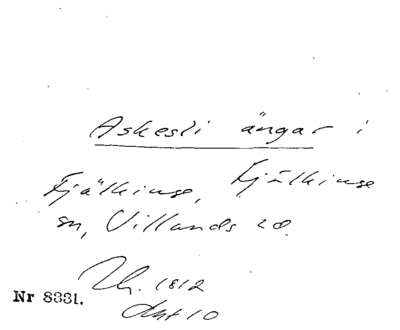 Askesli ängar i
Fjälkinge, Fjälkinge
sn, Villands hd.
Lh. 1812
akt 10
Nr 8331.